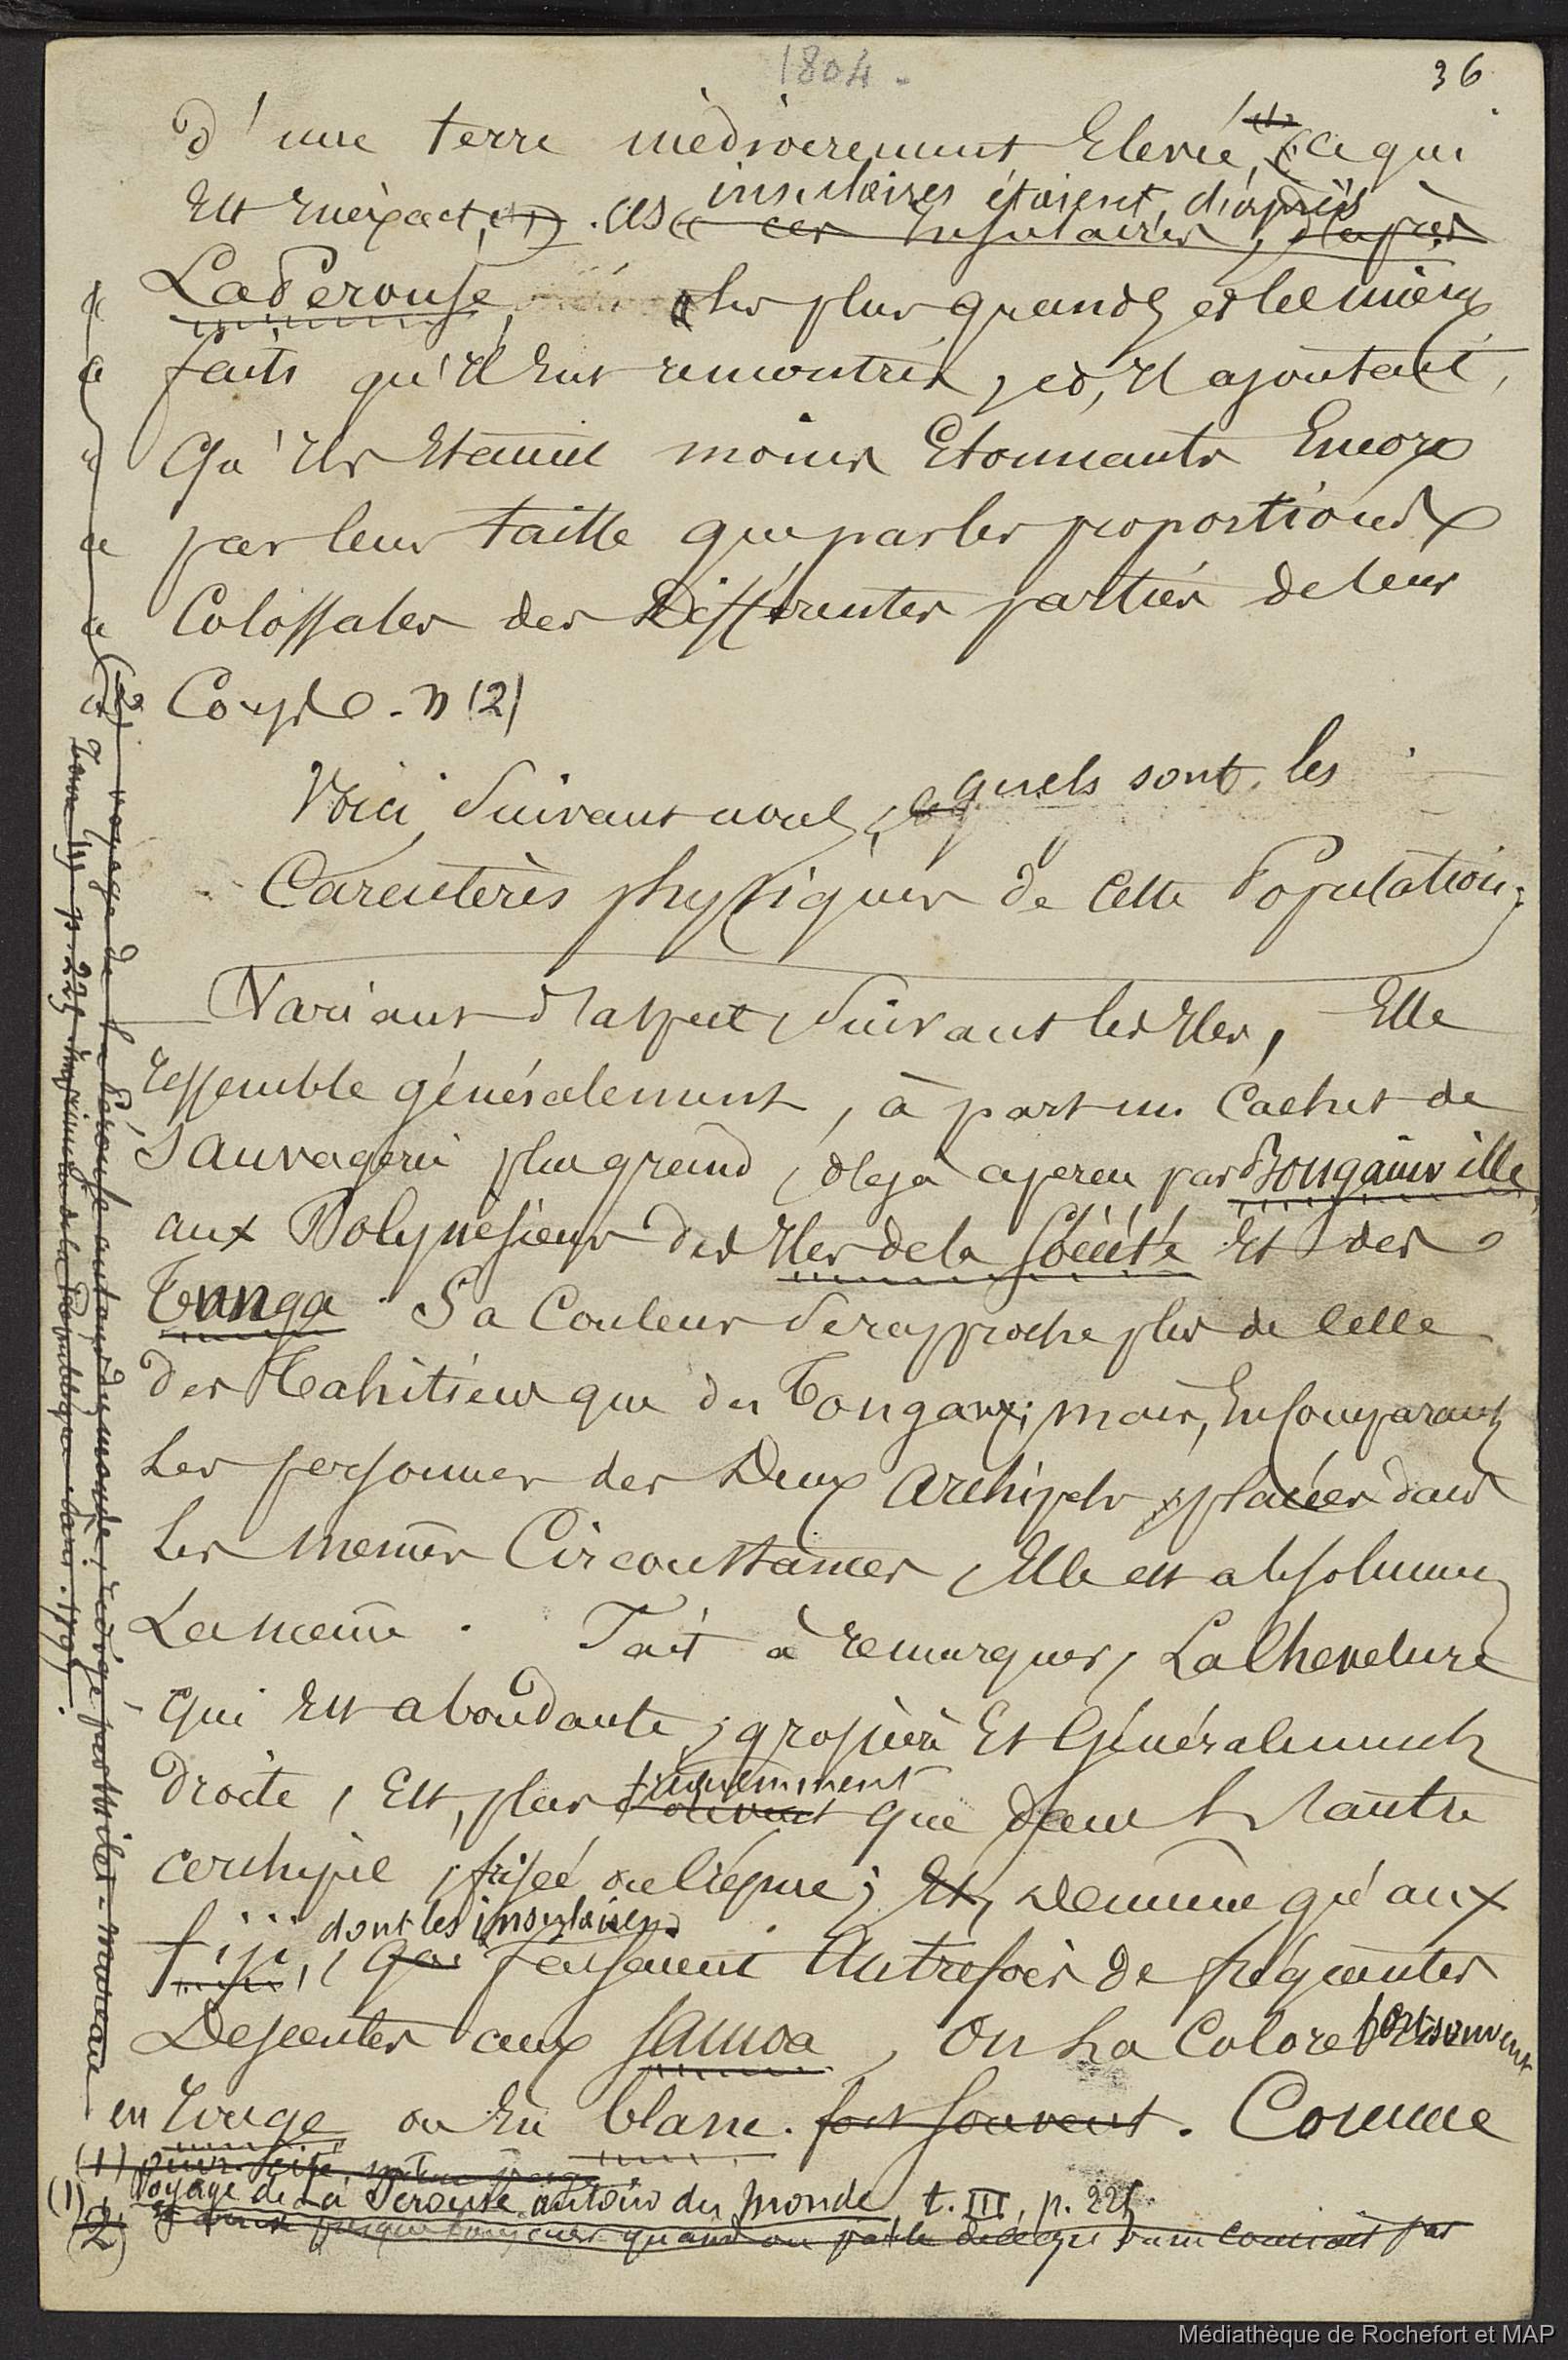 1804 -
36
d'une terre médiocrement Elevée, Ce qui
Est Inéxact. Ces insulaires étaient, d'après
ces Insulaires, d'après
La Pérouse, les plus grands et les mieux
faits qu'il Eut rencontrés, et, Il ajoutait,
Qu'Ils Etaient moins Etonnants Encore
par leur taille que par les proportions
Colossales des Différentes parties de leur
Corps. » (2)
Voici, Suivant nous, quels sont les
Caractères physiques de Cette Population;
Variant d'aspect Suivant les Iles, Elle
ressemble généralement, à part un Cachet de
Sauvagerie plus grand, déja aperçu par Bougainville,
aux Polynésiens des Iles de la Société Et des
Tunga. Sa Couleur se rapproche plus de Celle
des Tahitiens que des Tongans; mais, En Comparant
les personnes des Deux Archipels placées dans
les mêmes Circonstances, Elle est absolument
La même. Fait à remarquer, La Chevelure
qui Est abondante, grossière Et Généralement
droite, Est, plus fréquemment que dans l'autre
souvent
archipel, frisée ou Crépue; Et, De même qu'aux
Fiji, dont les insulaires
qui faisaient Autrefois de fréquentes
Descentes aux Samoa, On La Colore fort souvent
en rouge ou En blanc. fort souvent. Comme
(1)
(1) Voyage de La Pérouse autour du monde, t. III, p. 225.
(2) presque toujours quand on parle
(2) voyage de La Pérouse autour du monde, rédigé par Milet-Mureau
Tome III p. 225 Imprimerie de la République Paris. 1797.
Médiathèque de Rochefort et MAP